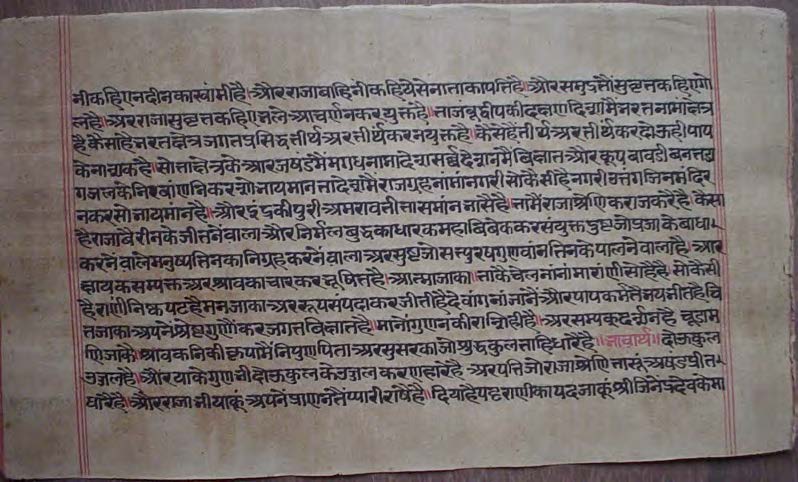 नीक हिए नदीनका स्वांमी है। और राजा वाहिनी कहिये सेना ताका पति है। और समुद्र तौ सुवृत्त कहिए गो
ल है। अर राजा सुवृत्त कहिए भले आचर्नकर युक्त है॥ ता जंबूद्वीप की दक्षण दिशा मैं भरत नामा क्षेत्र
है कैसा है भरतक्षेत्र जगत प्रसिद्ध तीर्थ अर तीर्थकरन युक्त है। कैसे है तीर्थ अर तीर्थकर दोऊ ही पाप
के नाशक है। सो ता क्षेत्र के आरजषंड मैं मगध नामा देश सर्व देशन मैं विक्षात और कूप बावडी बन तडा
ग जल के निवांणनिकर शोभायमान ता देश मैं राजग्रह नांमां नगरी सो कैसी है नगरी उतंग जिनमंदिर
नकर सोभायमान है। और इंद्र की पुरी अमरावती ता समान भासै है। ता मैं राजा श्रेणिक राज करै है। कैसा
है राजा बैरीन के जीतनें वाला और निर्मल बुद्ध का धारक महा बिबेक कर संयुक्त दुष्ट जो प्रजा के बाधा
करनें वाले मनुष्य तिनका निग्रह करनें वाला अर सुष्ट जो सत्पुरष गुणवांन तिनके पालने वाला है। आर
क्षायक सम्यक्त अर श्रावकाचार कर भूषित है। आत्मा जाका। ताकै चेलना नांमा राणी सोहै है। सो कैसी
है राणी निकपट है मन जाका अर रूप संपदा कर जीती है देवांगना जानें और पाप कर्म तै भयभीत है चि
त जाका अपनें श्रेष्ट गुणों कर जगत बिक्षात है। मानों गुणन की राशि ही है। अर सम्यक् दर्शन है चूडाम
णि जाकै। श्रावकनि की क्रृया मैं निपुण पिता अर सुसर का जो श्रुद्ध कुल ताहि धारै है॥ भावार्थ॥ दोऊ कुल
उज्जल है। और या के गुण भी दोऊ कुल के उज्जल करणहारे है अर पति जो राजा श्रेणि तासूं अषंड प्रीत
धारै है। और राजा भी याकूं अपनें प्राणन तैं प्यारी राषै है। दिया है पट्टराणी का पद जाकूं श्री जिनेंद्रदेव के मा